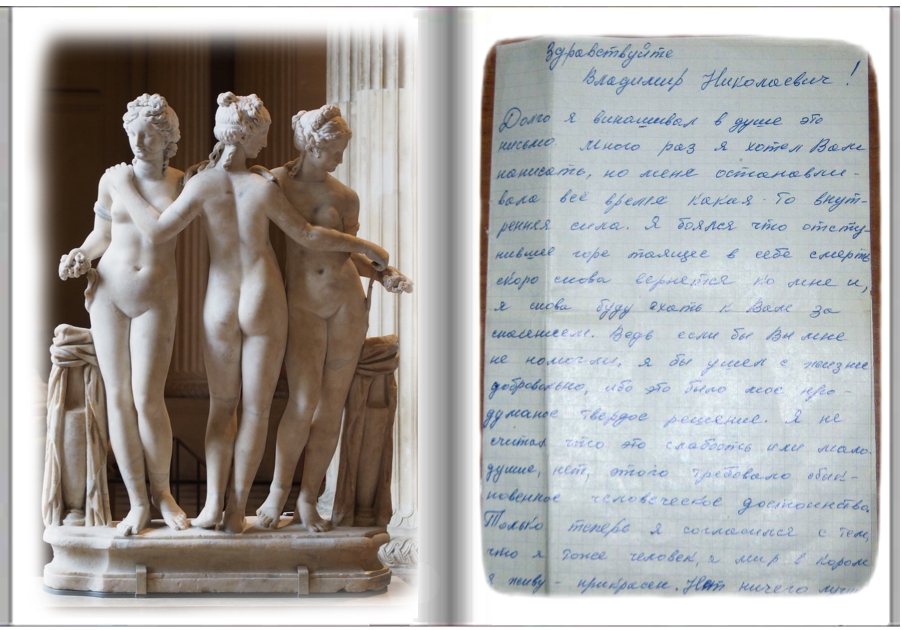 Здравствуйте
Владимир Николаевич!
Долго я винашивал в душе это
письмо. Много раз я хотел Вам
написать, но мене останавли-
вала всё время какая-то внут-
ренняя сила. Я боялся что отсту-
пившее горе таящее в себе смерть
скоро снова вернется ко мне и,
я снова буду ехать к Вам за
спасением. Ведь если бы Ви мне
не помогли, я бы ушел с жизни
добровольно, ибо это было мое про-
думаное твердое решение. Я не
считал что это слабость или мало-
душие, нет, этого требовало обик-
новенное человеческое достоинство.
Только теперь я согласился с тем,
что я тоже человек, и мир в котором
я живу - прикрасен. Нет ничего